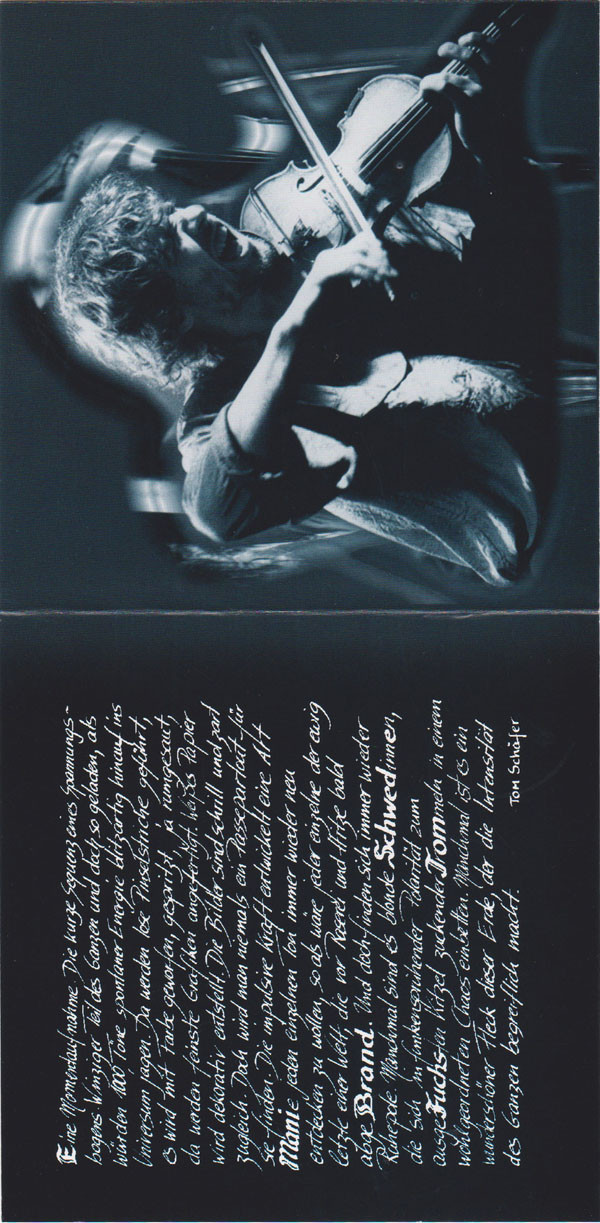 Eine Momentaufnahme. Die kurze Sequenz eines Spannungs-
bogens. Winziger Teil des Ganzen und doch so geladen, als
würden 1000 Töne spontaner Energie blitzartig hinauf ins
Universum jagen. Da werden leise Pinselstriche geführt,
es wird mit Farbe geworfen, gespritzt, ja rumgesaut,
da werden feinste Grafiken angefertigt. Weißes Papier
wird dekorativ entstellt. Die Bilder sind schrill und zart
zugleich. Doch wird man niemals ein Passepartout für
sie finden. Die impulsive Kraft entwickelt eine Art
Manie jeden einzelnen Ton immer wieder neu
entdecken zu wollen, so als wäre jeder einzelne der ewig
letzte einer Welt, die vor und Hitze bald
abge Brand. Und doch finden sich immer wieder
Ruhepole. Manchmal sind es blonde Schwedinnen,
die sich in funkensprühender Polarität zum
ausgeFuchsten Kitzel zuckender Trommeln in einem
wohlgeordneten Chaos einbetten. Manchmal ist es ein
wunderschöner Fleck dieser Erde, der die Intensität
des Ganzen begreiflich macht.
TOM Schäfer